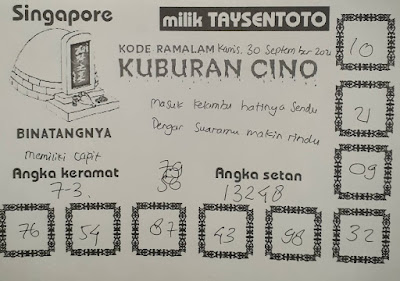 Singapore
milik TAYSENTOTO
KODE RAMALAM Kamis, 30 September 202
KUBURAN CINO
10
Masuk kelambu hatinya Sendu
Dengar Suaramu makin rindu
21
BINATANGNYA
memiliki capit
09
Angka keramat
7-3.
Angka setan
13248
76
54
87
43
98
32